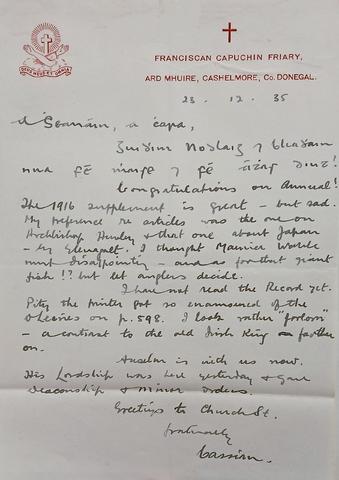 FRANCISCAN CAPUCHIN FRIARY,
ARD MHUIRE, CASHELMORE, CO. DONEGAL.
23. 12. 35
A a ċara,
Guidim Nodlaig ⁊ bliadain
nua fé ⁊ fé
Congratulations on Annual!
The 1916 supplement is great – but sad.
My preference re articles was the one on
Archbishop & that one about Japan
– by . I thought
most disappointing – and as for that giant
fish!! but let anglers decide.
I have not read the Record yet.
Pity the printer got so enamoured of the
on p. 598. I look rather "forlorn"
– a contrast to the old Irish King – farther
on.
Anselm is with us now.
His Lordship was here yesterday & gave
Deaconship & Minor Orders.
Greetings to Church St.
fraternally
Cassian.